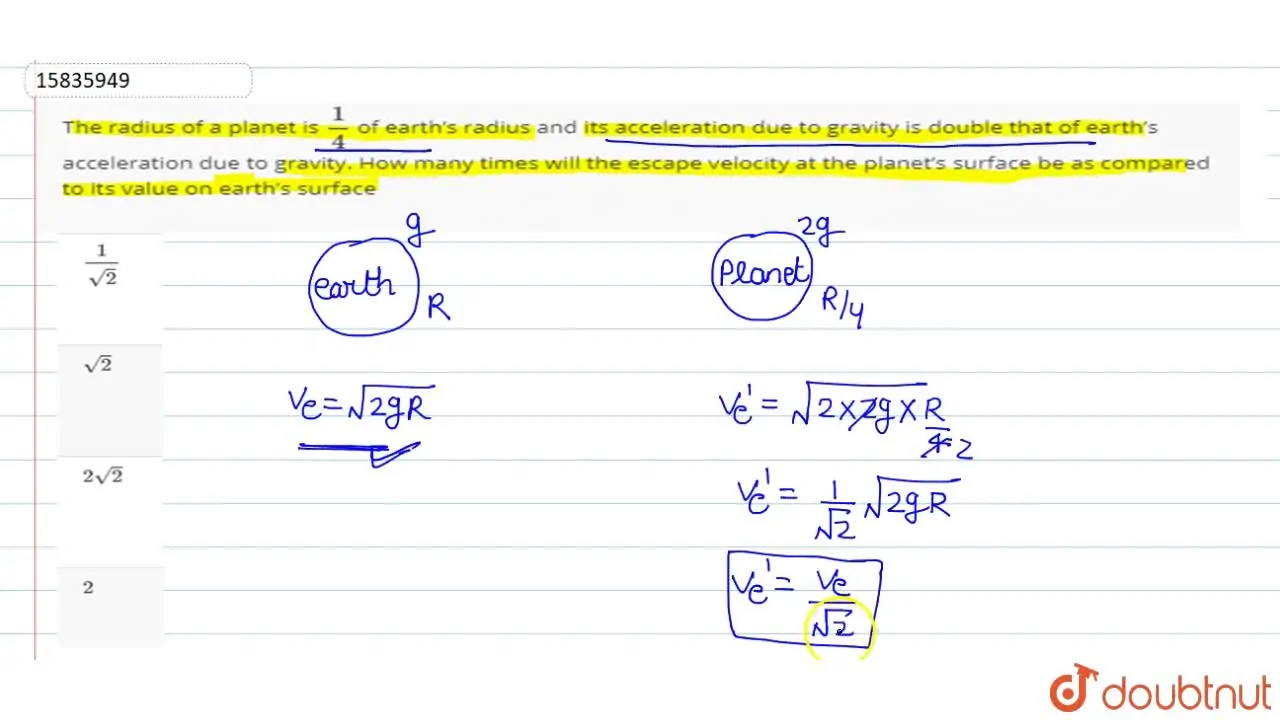 15835949
The radius of a planet is 1/4 of earth's radius and its acceleration due to gravity is double that of earth's
acceleration due to gravity. How many times will the escape velocity at the planet's surface be as compared
to its value on earth's surface
1/√2
√2
2√2
2
g
earth
R
2g
Planet
R/4
Ve = √2gR
Ve' = √2×2g×R/4 2
Ve' = 1/√2 √2gR
Ve' = Ve/√2
doubtnut